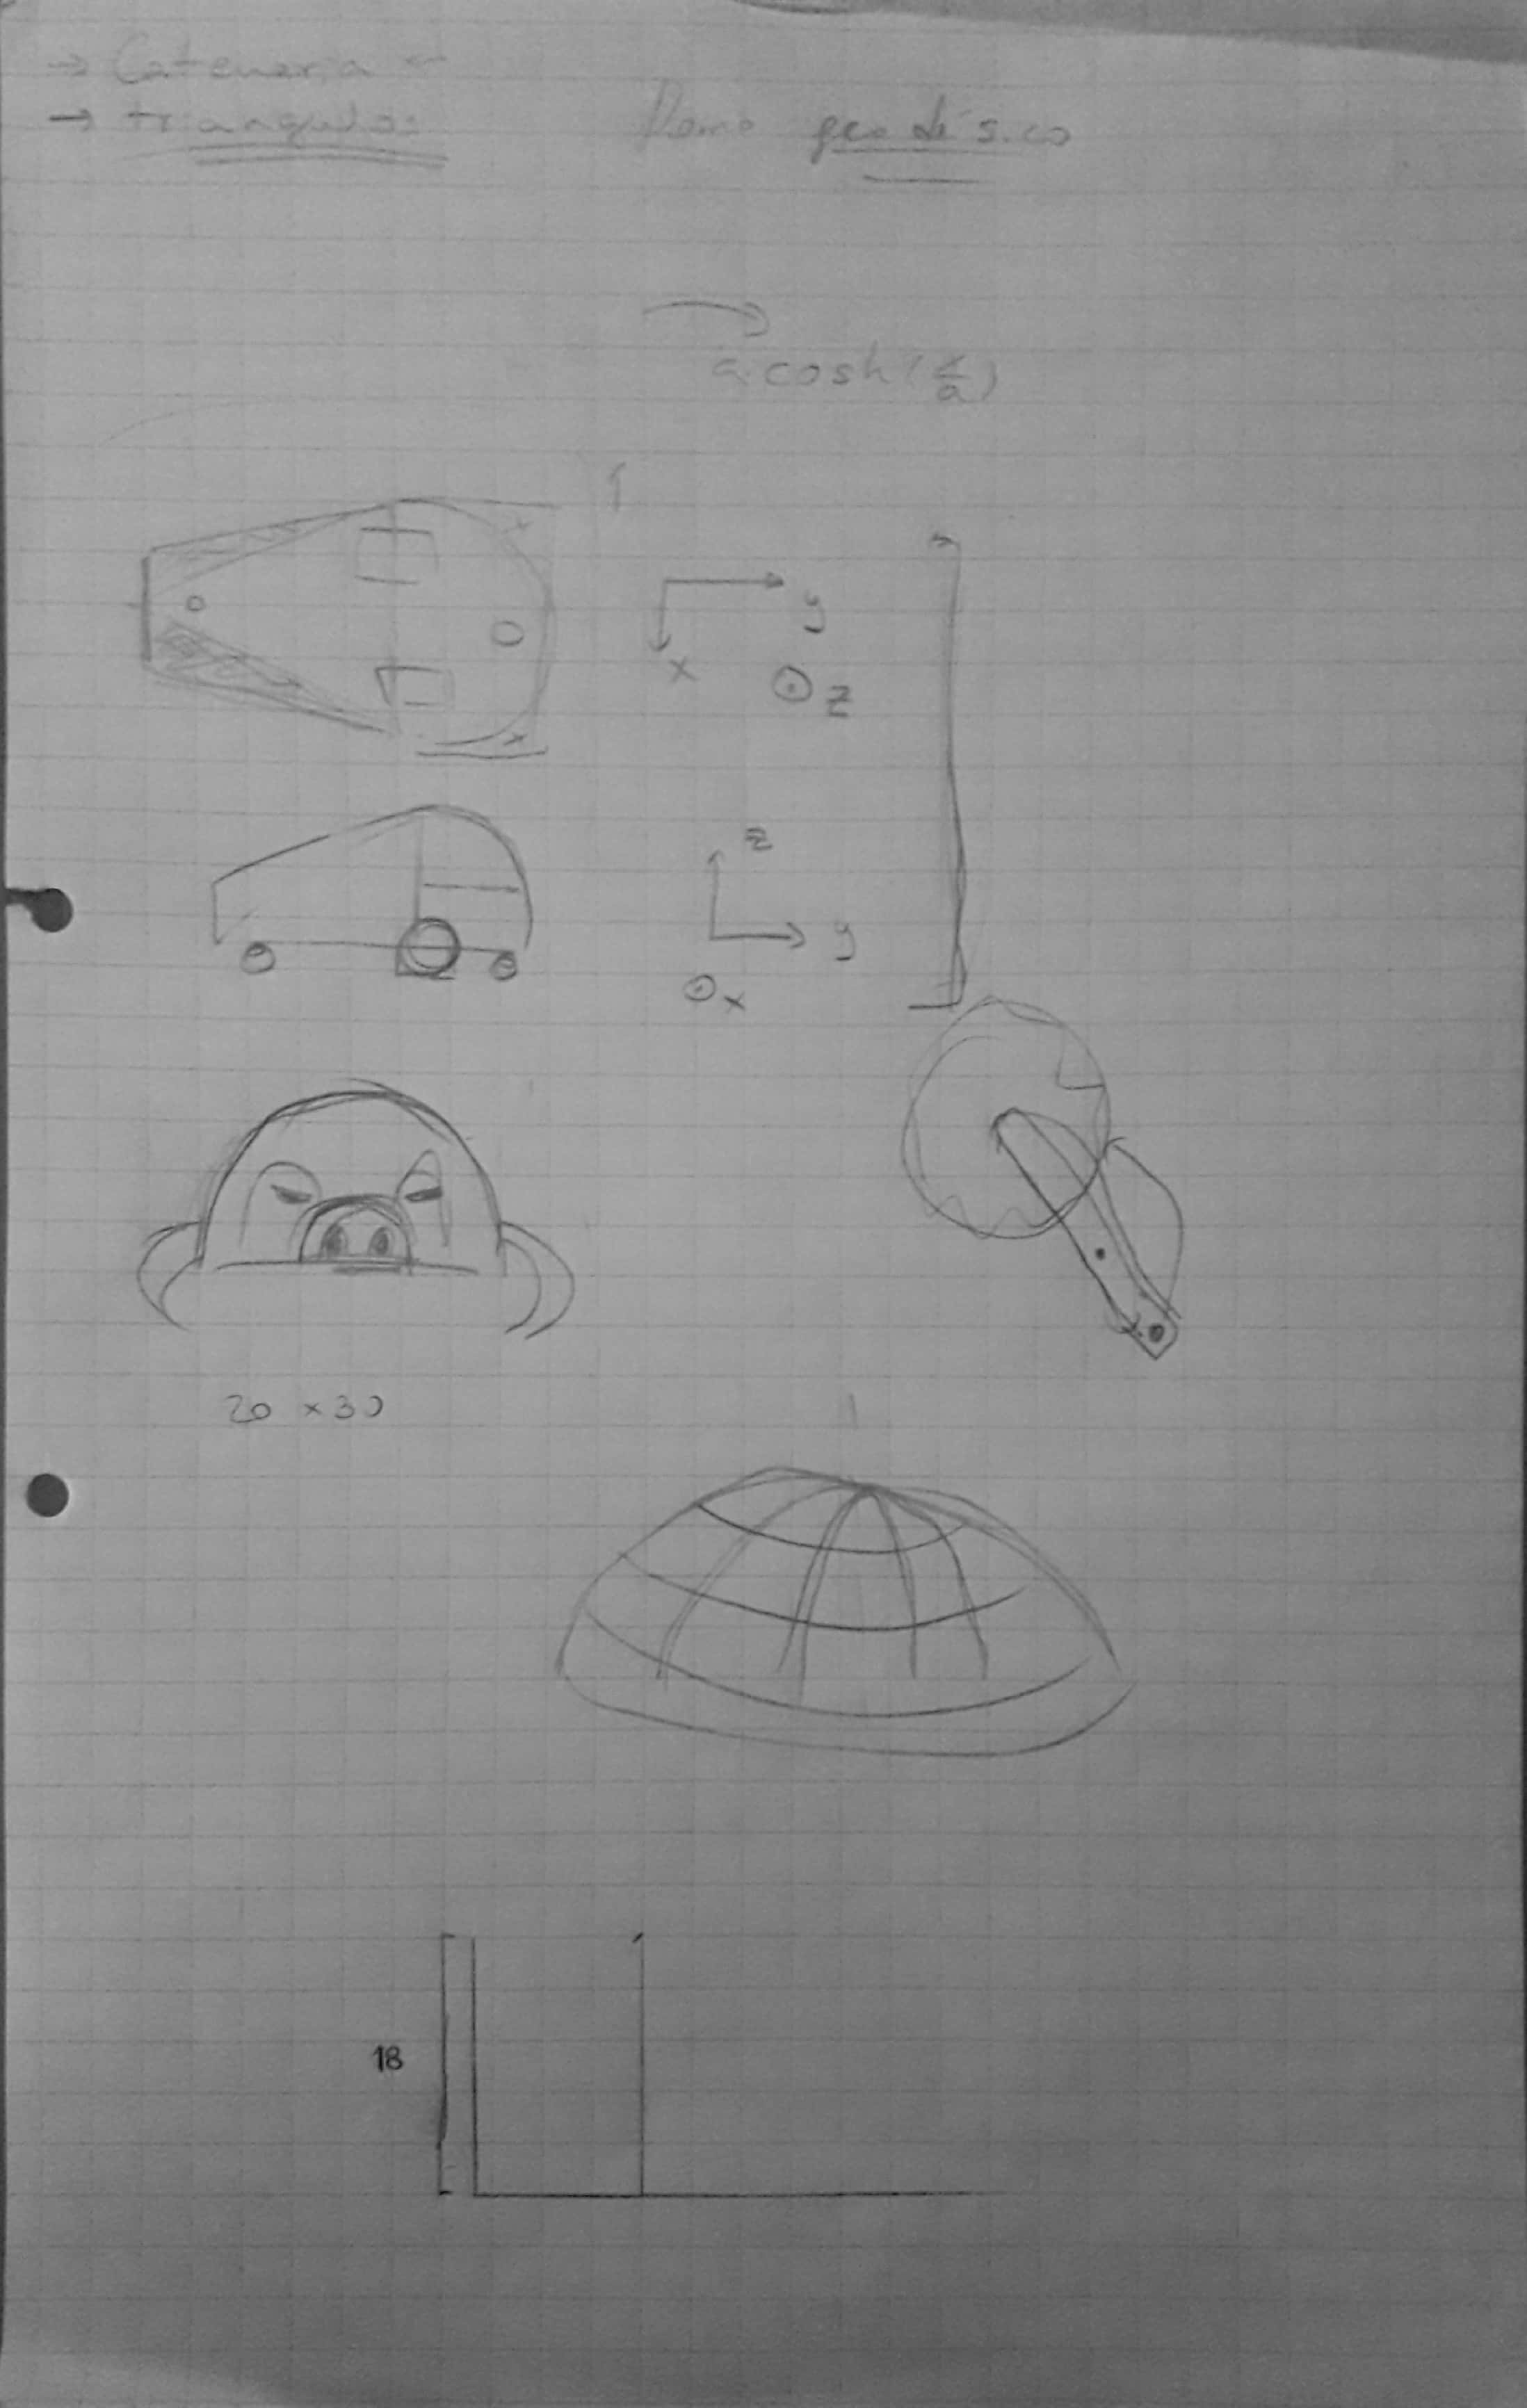 → Catenaria ←
→ triangulos
Domo geodésico
a cosh(x/a)
y
x
z
z
y
x
20 x 30
18